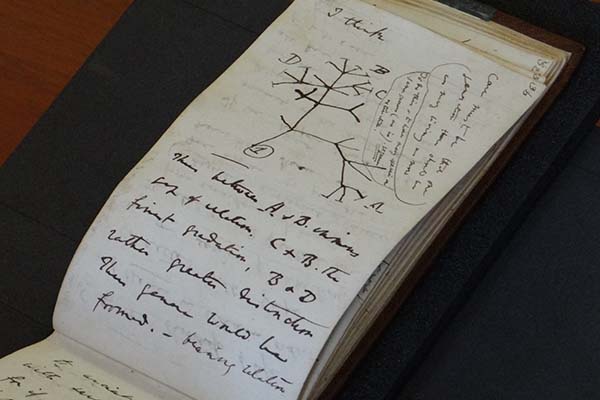 I think
36
Case must be that
one generation then should be
as many living as now
To do this & to have many species in
same genus (as is) requires
extinction
B
D
C
A
1
Thus between A & B. immense
gap of relation. C & B. the
finest gradation, B & D
rather greater distinction
Thus genera would be
formed. — bearing relation